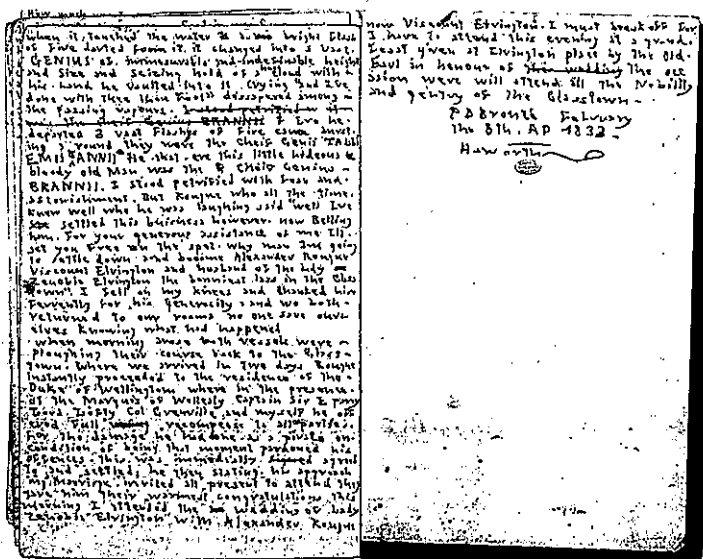 When it touched the water a bright flash
of Fire darted from it. it changed into a Vast
GENIUS of immeasurable and indefinable height
and size and seizing hold of a cloud with
his hand he vaulted into it. Crying and Ive
done with thee thou Fool disappeared among
the Passing vapours.
GENIUS BRANNII Ere he
departed 3 vast Flashes of Fire came
ing round they were the Cheif Genii TALLI
EMII ANNII He that ere this little hideous
bloody old Man was the Cheif Genius
BRANNII. I stood petrified with Fear and
astonishment. But Rougue who all the time
knew well who he was laughing said well Ive
settled this buisness however. now Bellin
ham. For your generous assistance of me Ill
set you Free on the spot. why man Im going
to settle down and become Alexander Rougue
Viscount Elrington and husband of the Lady
Zenobia Elrington the bonniest lass in the Glass
town" I fell on my knees and thanked him
Fervently For his Generosity and we both
returned to our rooms no one save ours
elves knowing what had happened
when morning arose both vessels were
ploughing their course back to the Glass
town. Where we arrived in Two days Rougue
instantly proceeded to the residence of the
Duke of Wellington where in the presence
of the Marquis of Wellesly Captain Sir E parry
Lord Lofty Col Grenville and myself he off
ered Full recompense to all parties
For the damage he had done as a pirate on
condition of being that moment pardoned his
offences This was immediately agreed
to and settled. he then stating his approach
ing Marriage invited all present to attend they
gave him their warmest congratulations This
morning I attended the wedding of Lady
Zenobia Elrington with Alexander Rougue
now Viscount Elrington. I must break off For
I have to attend this evening at a grand
Feast given at Elrington place by the Old
Earl in honour of the wedding the occ
asion were will attend all the Nobility
and gentry of the Glasstown
P B Bronte Febuary
the 8th. AD 1832
Haworth